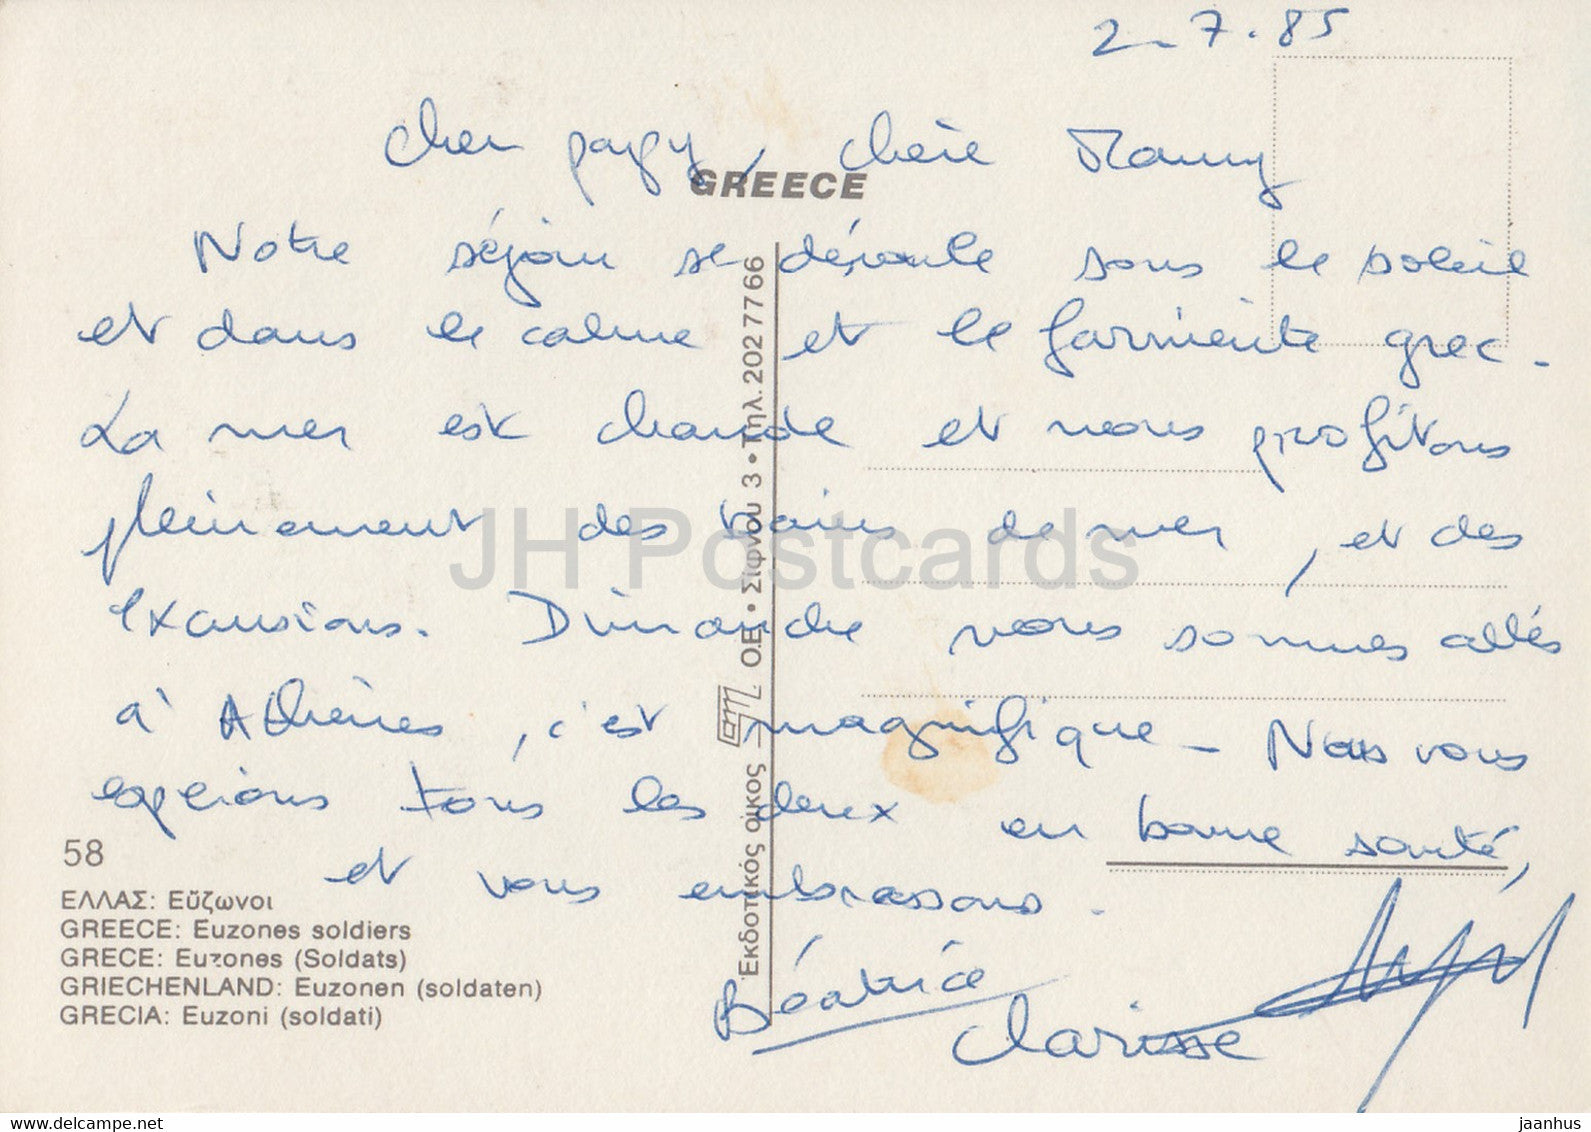 2-7.85
Cher papy, chère Mamy
GREECE
Notre séjour se déroule sous le soleil
et dans le calme et le farniente grec.
La mer est chaude et nous profitons
pleinement des bains de mer, et des
excursions. Dimanche nous sommes allés
à Athènes, c'est magnifique - Nous vous
espérons tous les deux en bonne santé,
et vous embrassons.
Béatrice
Clarisse
58
ΕΛΛΑΣ: Εὔζωνοι
GREECE: Euzones soldiers
GRECE: Euzones (Soldats)
GRIECHENLAND: Euzonen (soldaten)
GRECIA: Euzoni (soldati)
Ἐκδοτικός οἶκος Ο.Ε. • Σίφνου 3 • Τηλ. 202 77 66
JH Postcards
www.delcampe.net
jaanhus